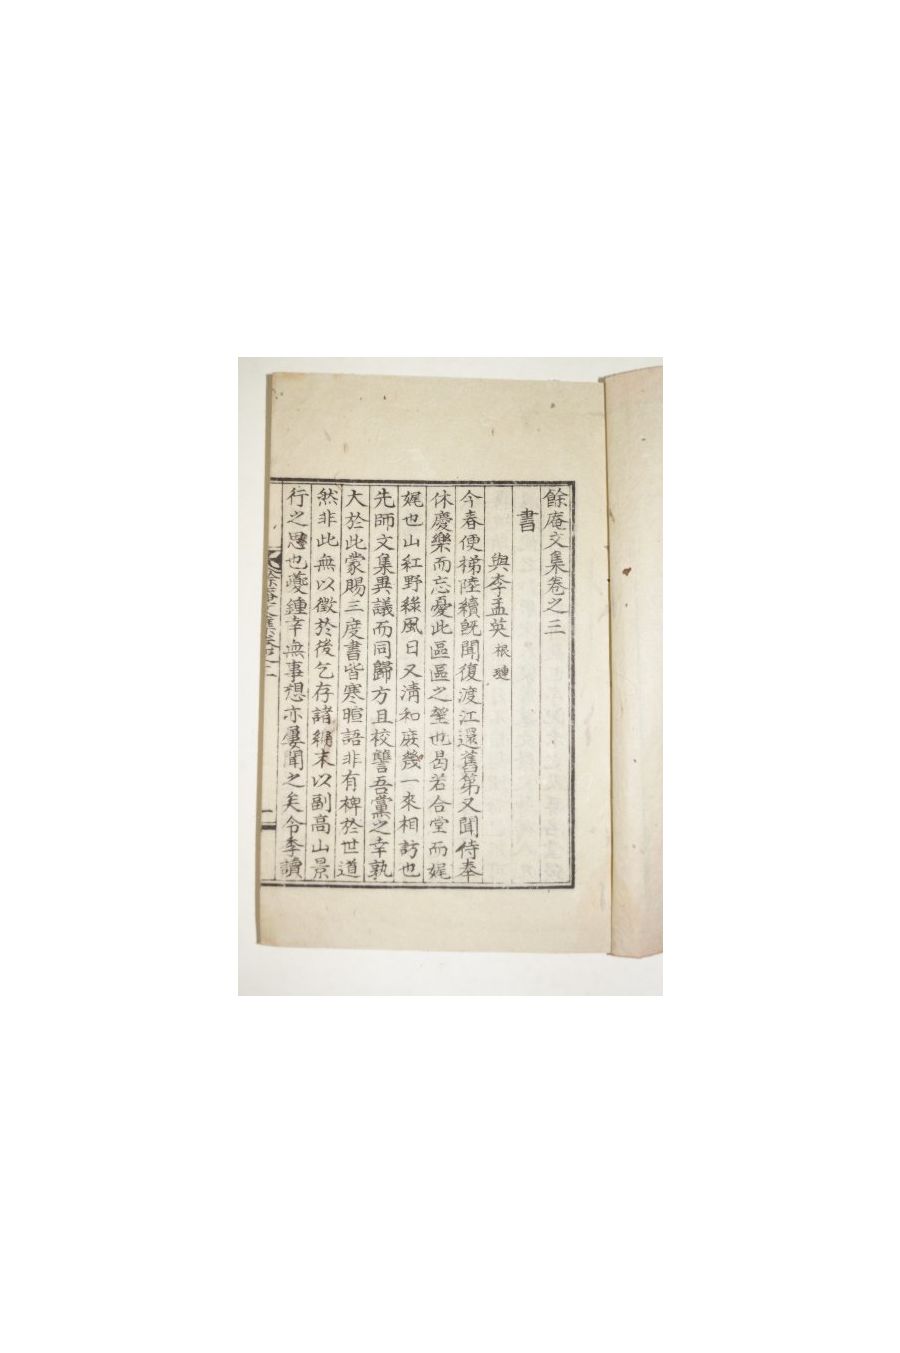 餘庵文集卷之三
書
與李孟英 根璉
今春便梯陸續旣聞復渡江還舊第又聞侍奉
休慶樂而忘憂此區區之望也曷若合堂而娓
娓也山紅野綠風日又淸和庶幾一來相訪也
先師文集異議而同歸方且校讐吾黨之幸孰
大於此蒙賜三度書皆寒暄語非有裨於世道
然非此無以徵於後乞存諸編末以副高山景
行之思也夔鍾幸無事想亦屢聞之矣令季讀